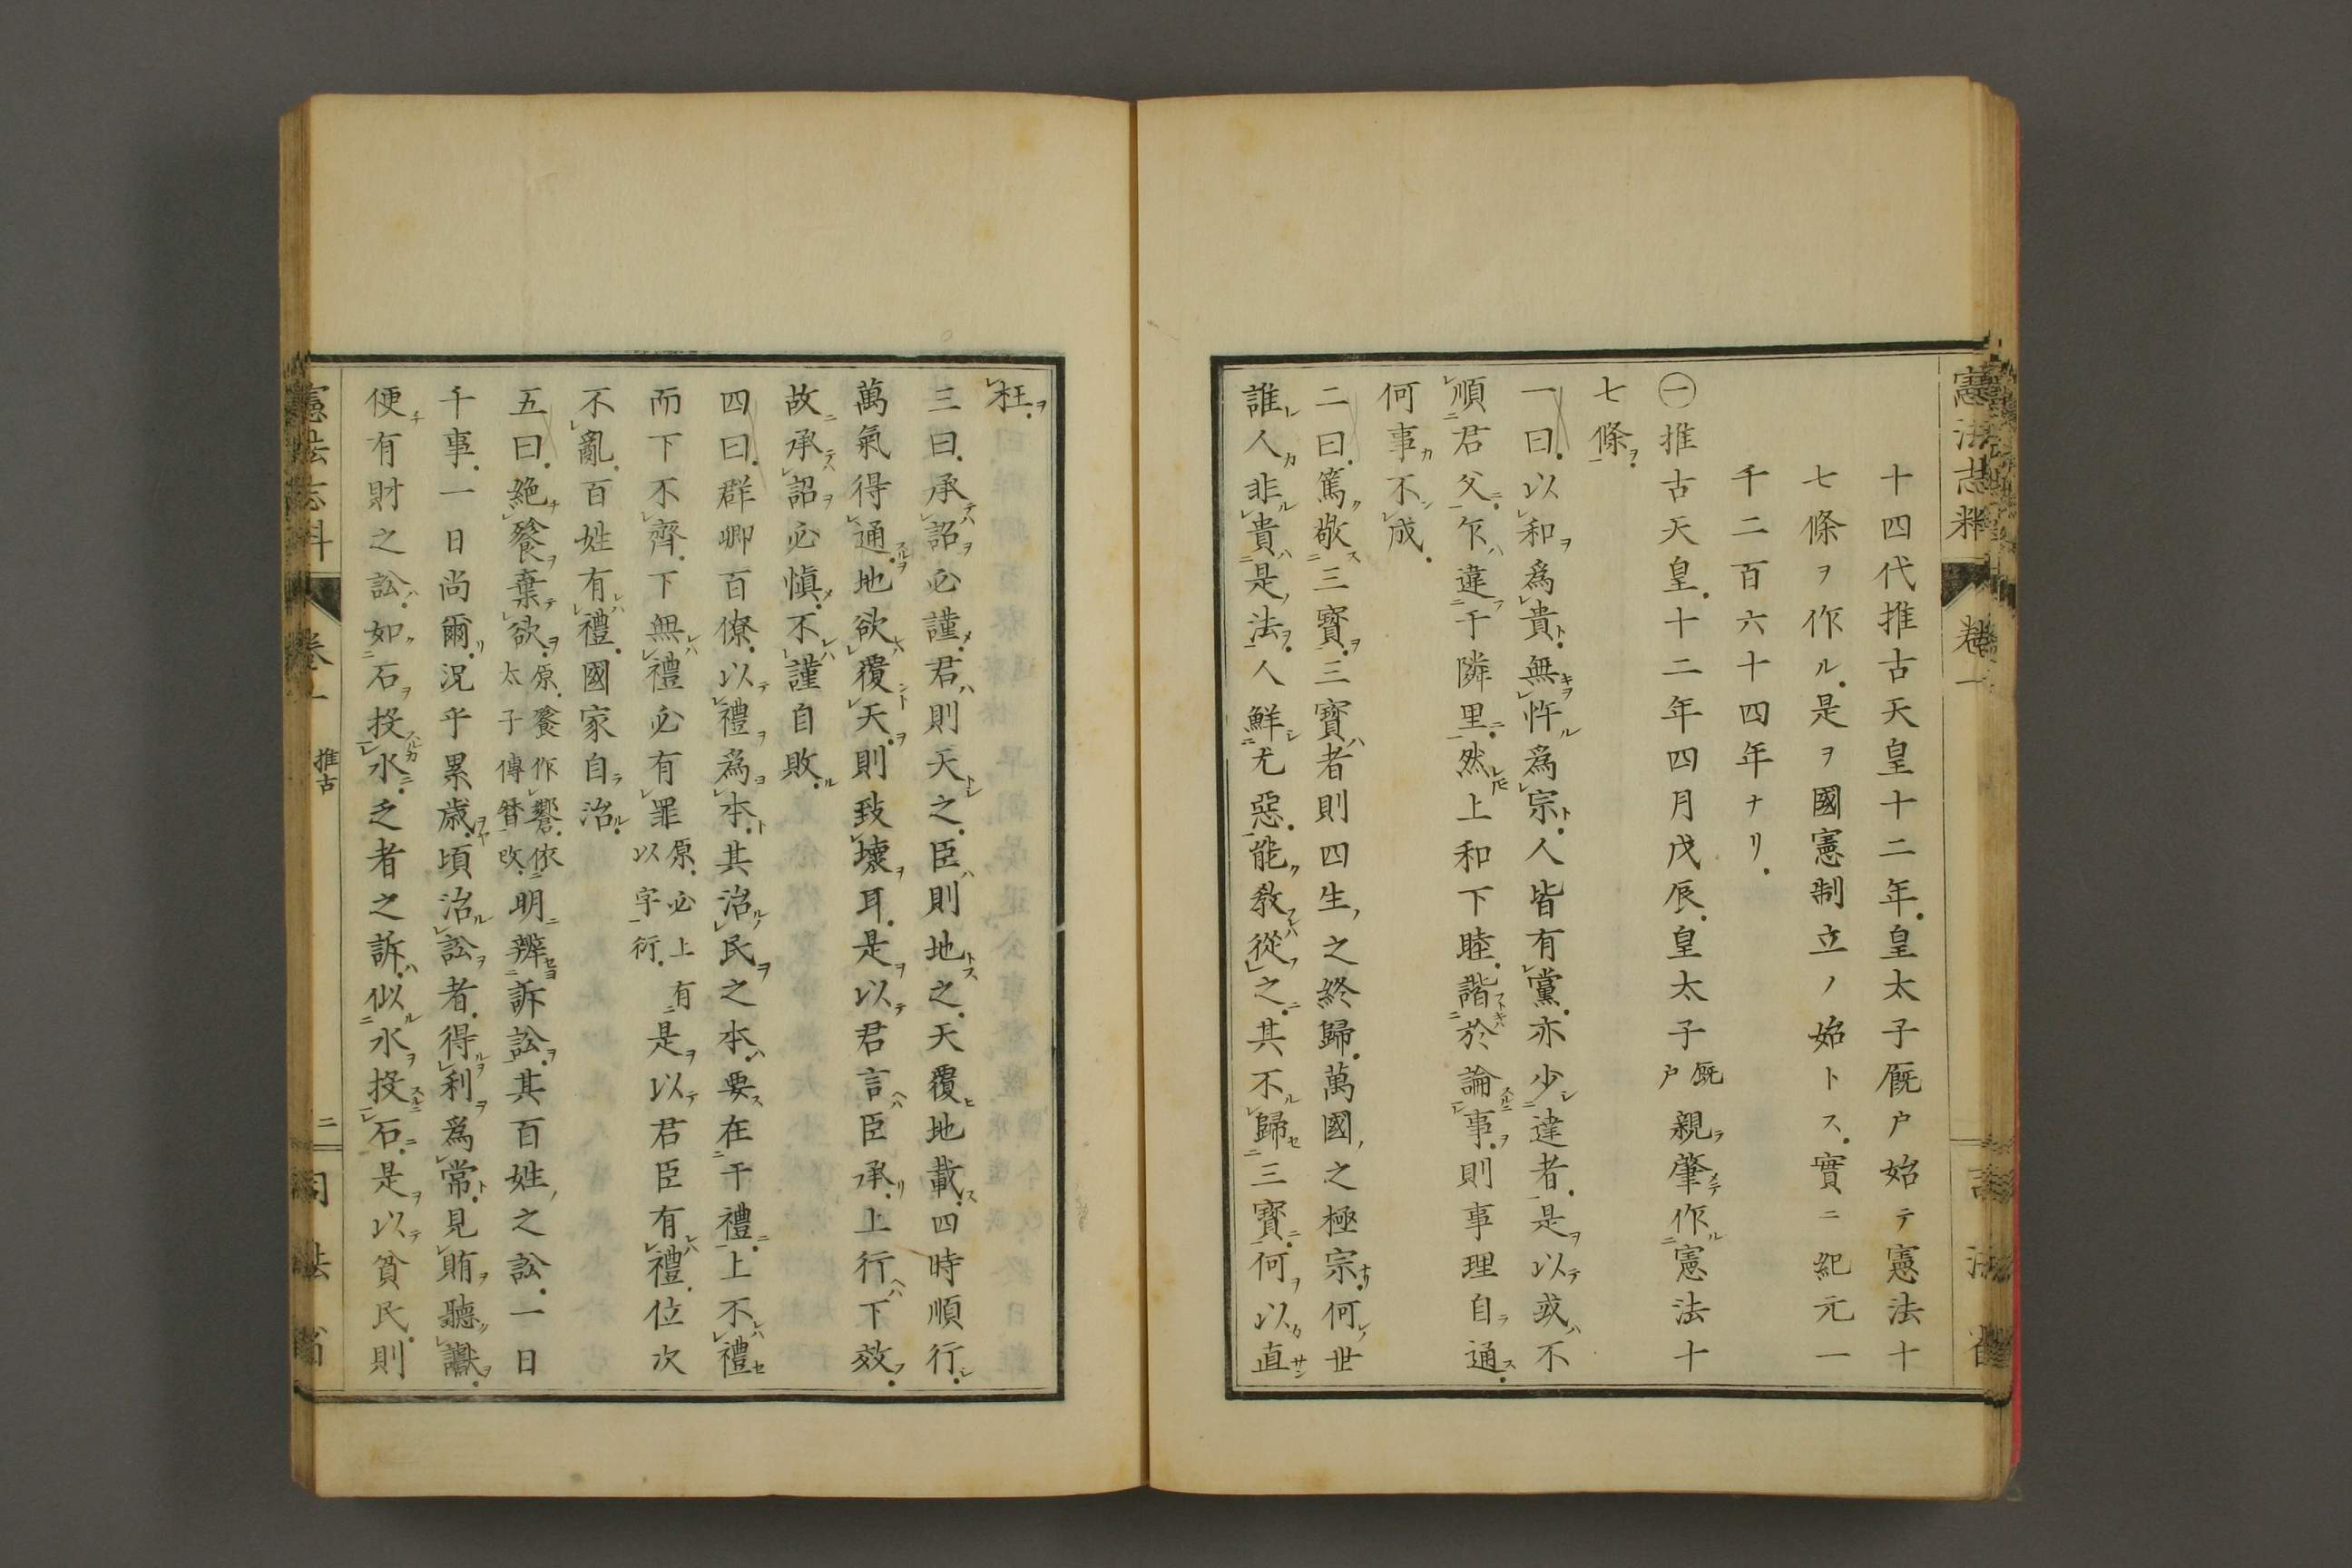 憲法志料 卷一
十四代推古天皇十二年皇太子厩戸始テ憲法十
七條ヲ作ル是ヲ國憲制立ノ始トス實ニ紀元一
千二百六十四年ナリ
㊀推古天皇十二年四月戊辰皇太子厩戸親肇作憲法十
七條
一曰以和爲貴無忤爲宗人皆有黨亦少達者是以或不
順君父乍違于隣里然上和下睦諧於論事則事理自通
何事不成
二曰篤敬三寶三寶者則四生之終歸萬國之極宗何世
誰人非貴是法人鮮尤惡能教從之其不歸三寶何以直
枉
三曰承詔必謹君則天之臣則地之天覆地載四時順行
萬氣得通地欲覆天則致壞耳是以君言臣承上行下效
故承詔必愼不謹自敗
四曰群卿百僚以禮爲本其治民之本要在于禮上不禮
而下不齊下無禮必有罪原必上有以字衍是以君臣有禮位次
不亂百姓有禮國家自治
五曰絶餮棄欲原餮作饗依太子傳曆改明辨訴訟其百姓之訟一日
千事一日尚爾況乎累歳頃治訟者得利爲常見賄聽讞
便有財之訟如石投水乏者之訴似水投石是以貧民則
憲法志料 卷一 推古 二 司法省